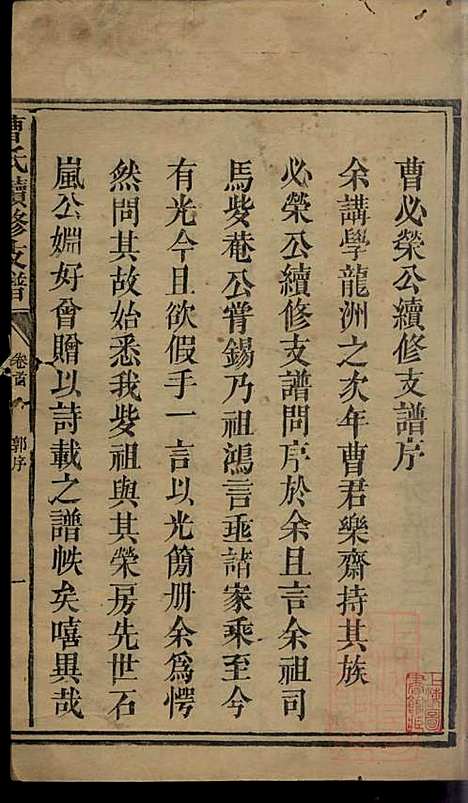 曹必榮公續修支譜序
余講學龍洲之次年曹君樂齋持其族
必榮公續修支譜問序於余且言余祖司
馬紫菴公嘗錫乃祖鴻言垂諸家乘至今
有光今且欲假手一言以光簡册余為愕
然問其故始悉我紫祖與其榮房先世石
嵐公婣好曾贈以詩載之譜帙矣嘻異哉
曹氏續修支譜
卷首
郭序
一